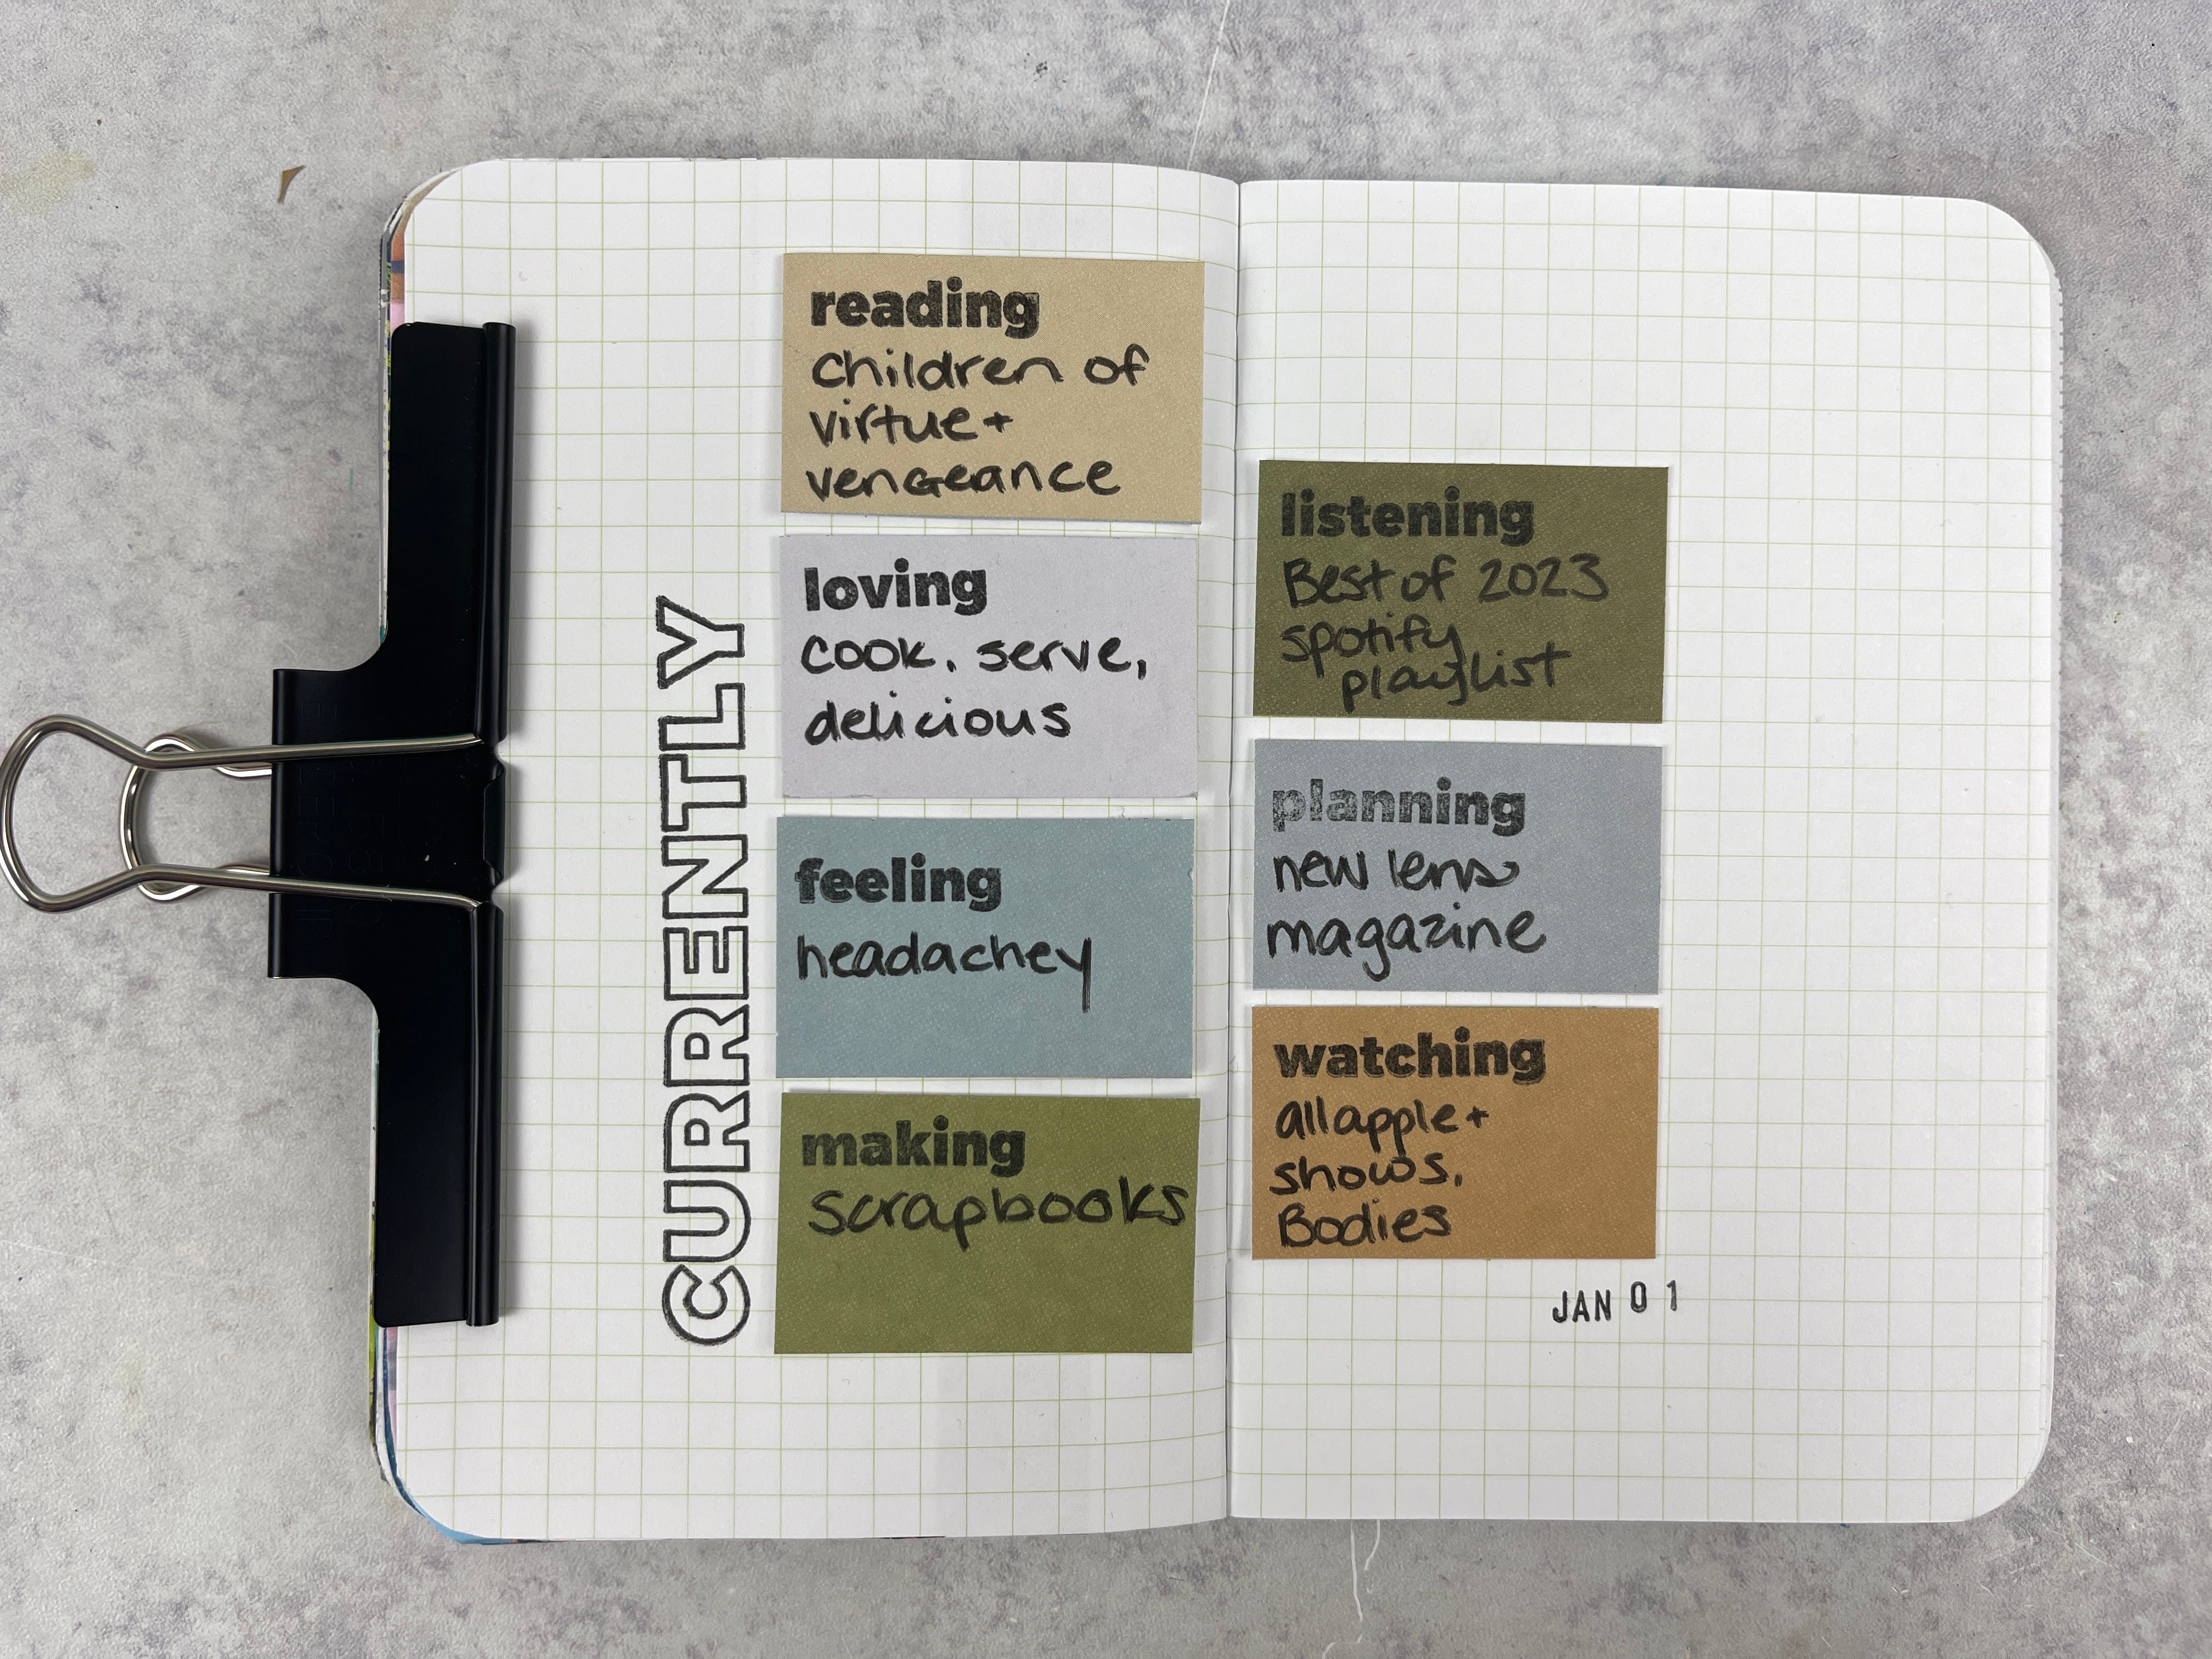 CURRENTLY
reading
Children of
virtue +
vengeance
loving
cook, serve,
delicious
feeling
headachey
making
scrapbooks
listening
Best of 2023
spotify
playlist
planning
new lens
magazine
watching
all apple +
shows,
Bodies
JAN 01